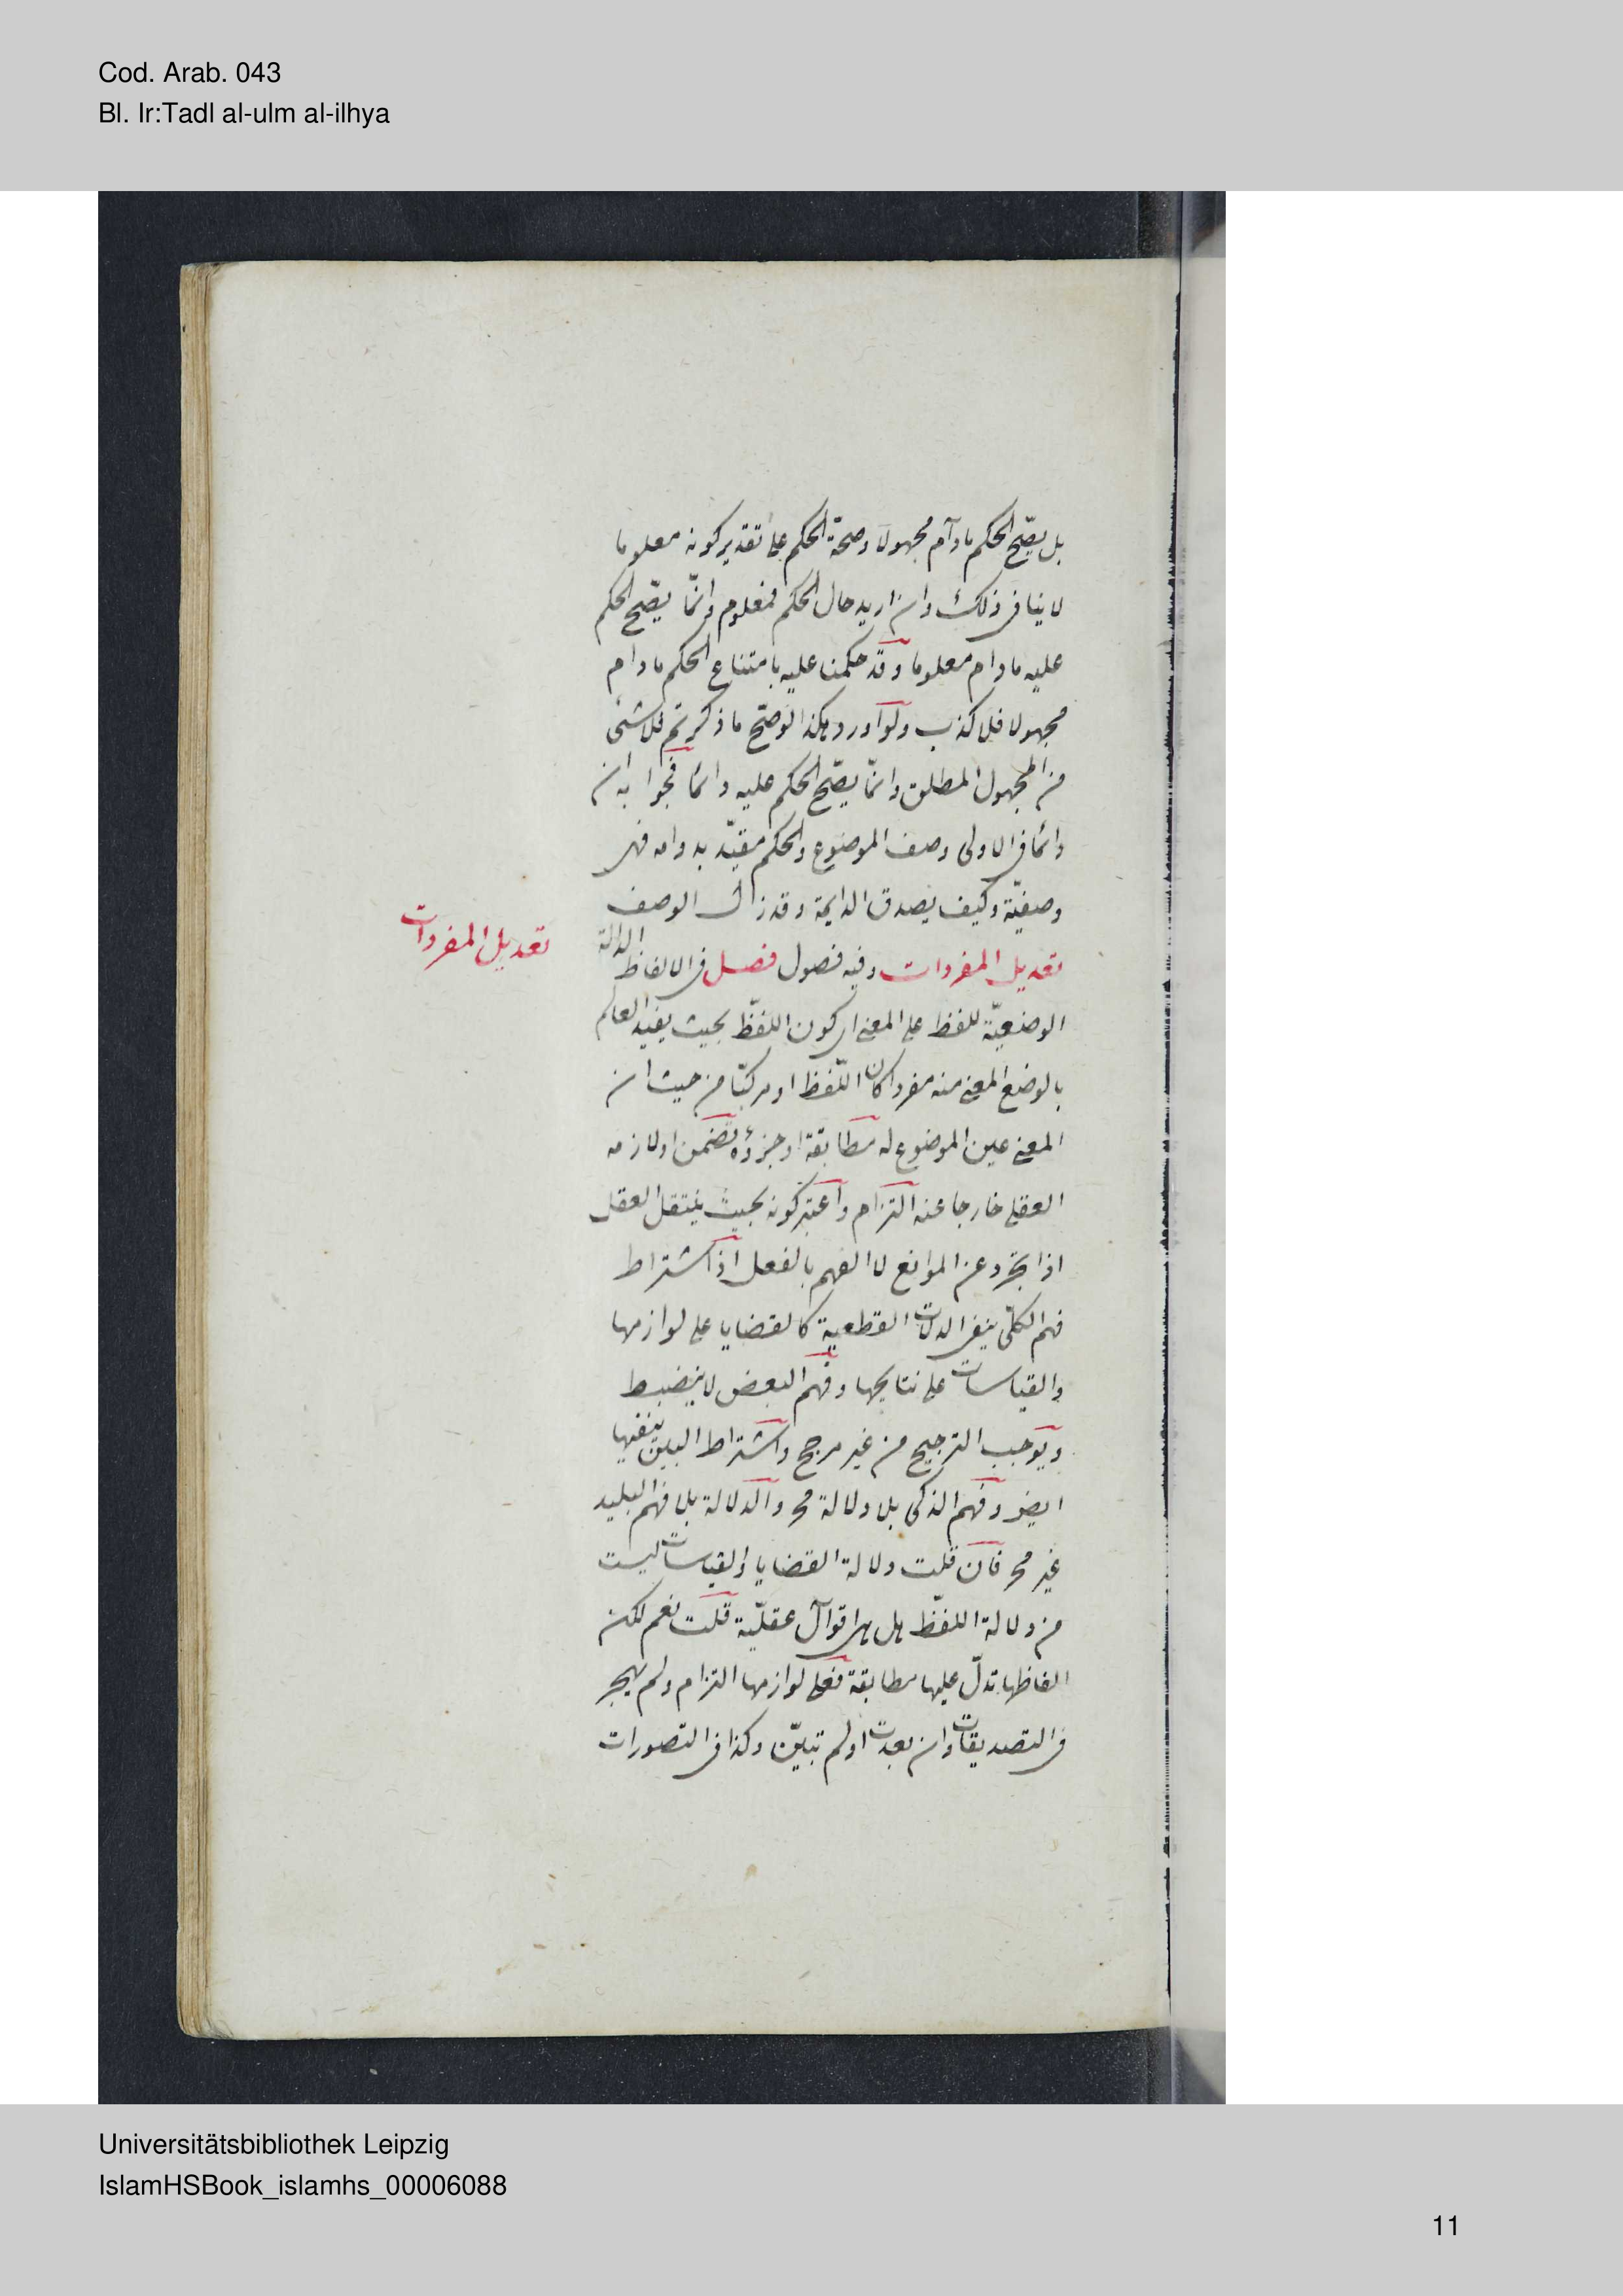 Cod. Arab. 043
Bl. Ir:Tadl al-ulm al-ilhya
بل يصّح الحكم مادآم مجهولا وصحّة الحكم على تقدير كونه معلوما
لا ينافى ذلك وان اريد حال الحكم فمعلوم وانّما يصّح الحكم
عليه مادام معلوما وقد حكمنا عليه بامتناع الحكم مادام
مجهولا فلا كذب ولو اورد هكذا لو صّح ما ذكرتم فلا شئ
من المجهول المطلق وانّما يصّح الحكم عليه دائما فجوابه ان
دائما فى الاولى وصف الموضوع والحكم مقيّد بدوامه فهى
وصفيّة وكيف يصدق الدايمة وقد زال الوصف
تعديل المفردات وفيه فصول فصل فى الالفاظ الدالة
تعديل المفردات
الوضعيّة للفظ على المعنى اى كون اللفّظ بحيث يفيد العالم
بالوضع المعنى منه مفردا كان اللّفظ او مركبّا من حيث ان
المعنى عين الموضوع له مطابقة او جزؤه تضمن او لازمه
العقلى خارجا عنه التزام واعتبر كونه بحيث ينتقل العقل
اذا تجرد عن الموانع لا الفهم بالفعل اذ اشتراط
فهم الكلّى ينفى الدلالات القطعية كالقضايا على لوازمها
والقياسات على نتايجها وفهم البعض لا ينضبط
ويوجب الترجيح من غير مرجح واشتراط البين ينفيها
ايضو وفهم الذكى بلا دلالة مح والدلالة بلا فهم البليد
غير مح فان قلت دلالة القضايا والقياسات ليست
من دلالة اللفّظ بل هى اقوال عقليّة قلت نعم لكن
الفاظها تدلّ عليها مطابقة فعلى لوازمها التزام ولم يهجر
فى التصديقات وان بعدت او لم تبيّن وكذا فى التصورات
Universitätsbibliothek Leipzig
IslamHSBook_islamhs_00006088
11